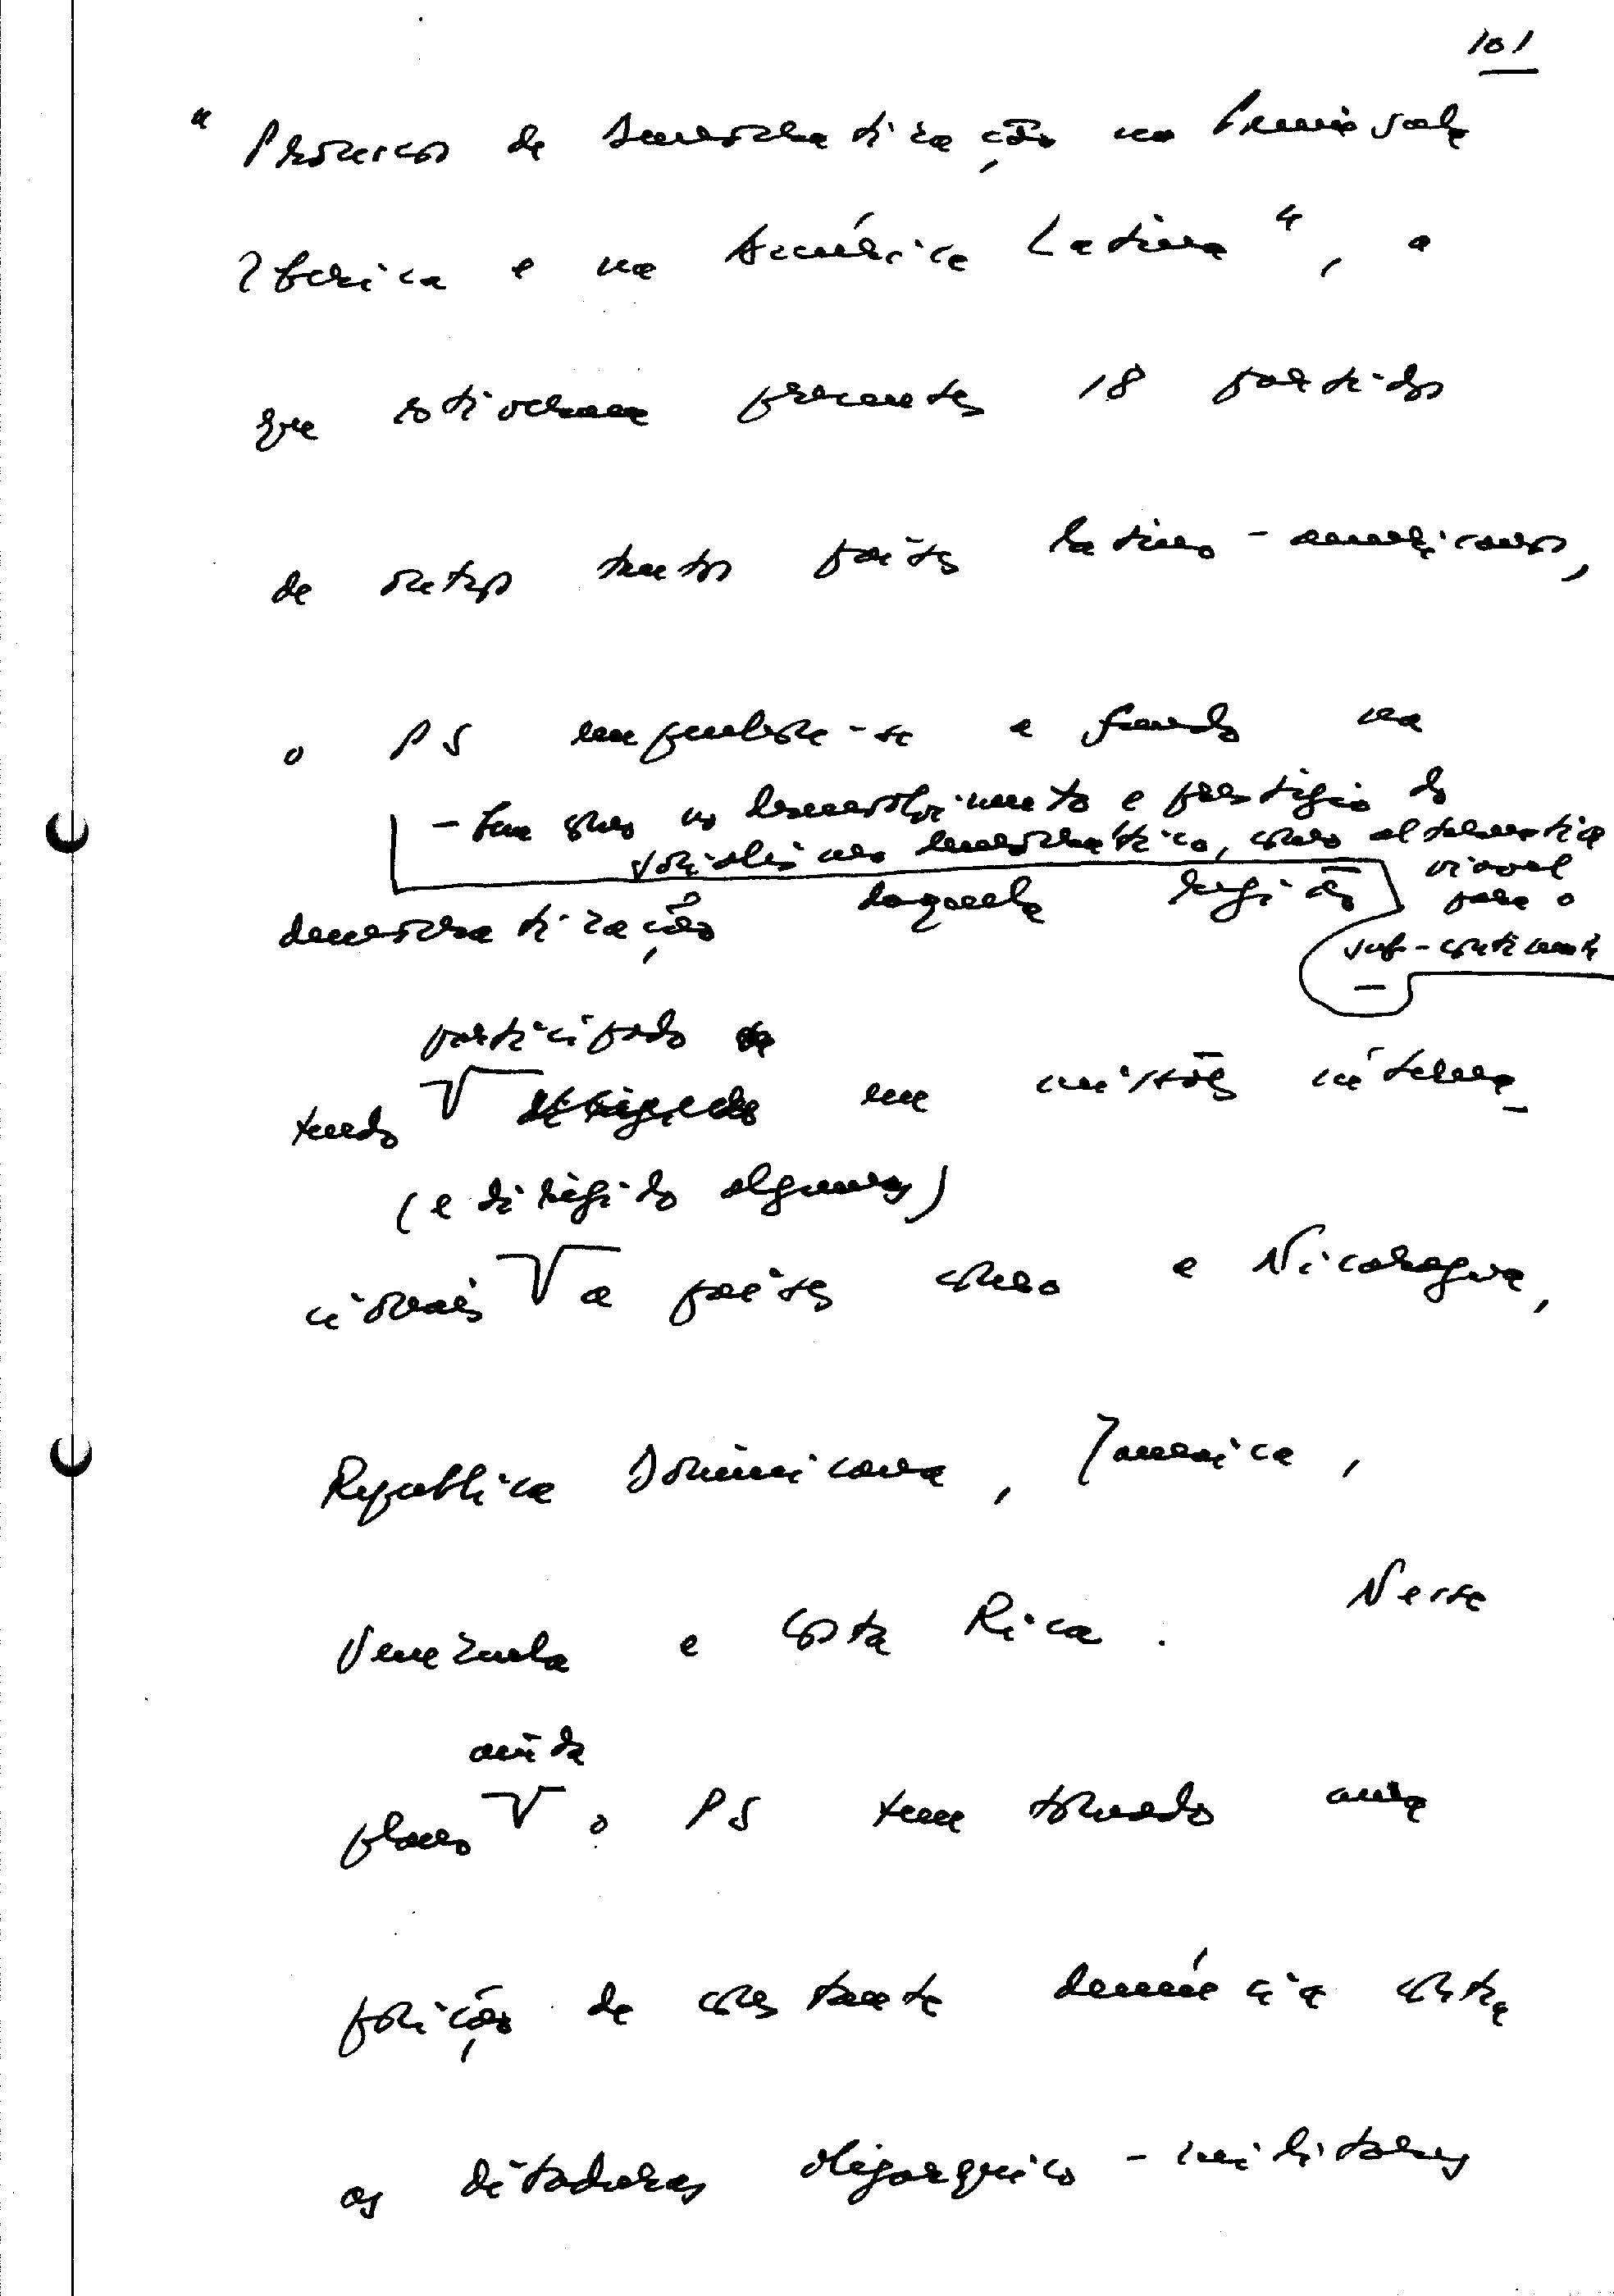 101
"Processos de Democratização na Península
Iberica e na América Latina", a
que estiveram presentes 18 partidos
de outros tantos países latino-americanos,
o PS empenhou-se a fundo na
- bem como no desenvolvimento e prestígio do
socialismo democrático, como alternativa
viável
democratização daquela região para o
sub-continente
—
participado
tendo em missões interna-
(e dirigido algumas)
cionais a países como a Nicaragua,
Republica Dominicana, Jamaica,
Venezuela e Costa Rica. Nesse
ainda
plano o PS tem tomado uma
posição de constante denúncia contra
as ditaduras oligarquico-militares